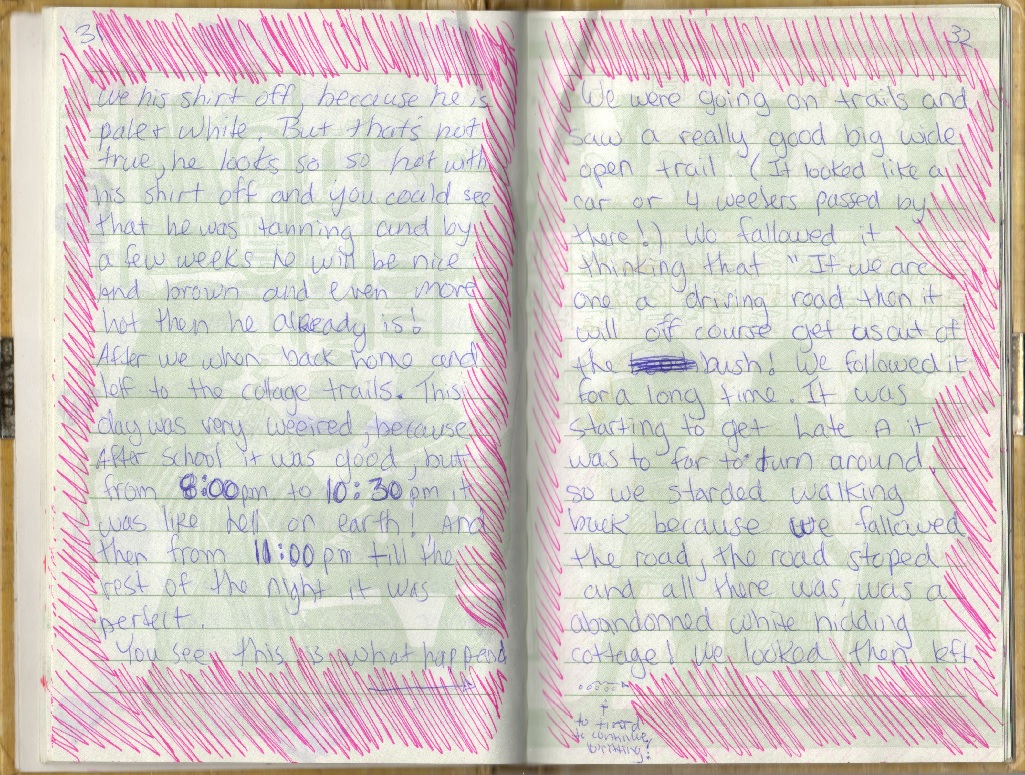 31
we his shirt off, because he is
paler white. But that's not
true, he looks so so hot with
his shirt off and you could see
that he was tanning and by
a few weeks he will be nice
and brown and even more
hot then he already is!
After we when back home and
left to the collage trails. This
day was very weeired, because
After school it was good, but
from 8:00pm to 10:30pm it
was like hell on earth! And
then from 11:00pm till the
rest of the night it was
perfect.
You see, this is what happend
32
We were going on trails and
saw a really good big wide
open trail. (It looked like a
car or 4 weelers passed by
there!) We fallowed it
thinking that "If we are
one a driving road then it
will off course get us out of
the bush! We followed it
for a long time. It was
starting to get late A it
was to far to turn around,
so we starded walking
back because we fallowed
the road, the road stoped
and all there was, was a
abandonned white hidding
cottage! We looked then left
to tired
to continue
writting!